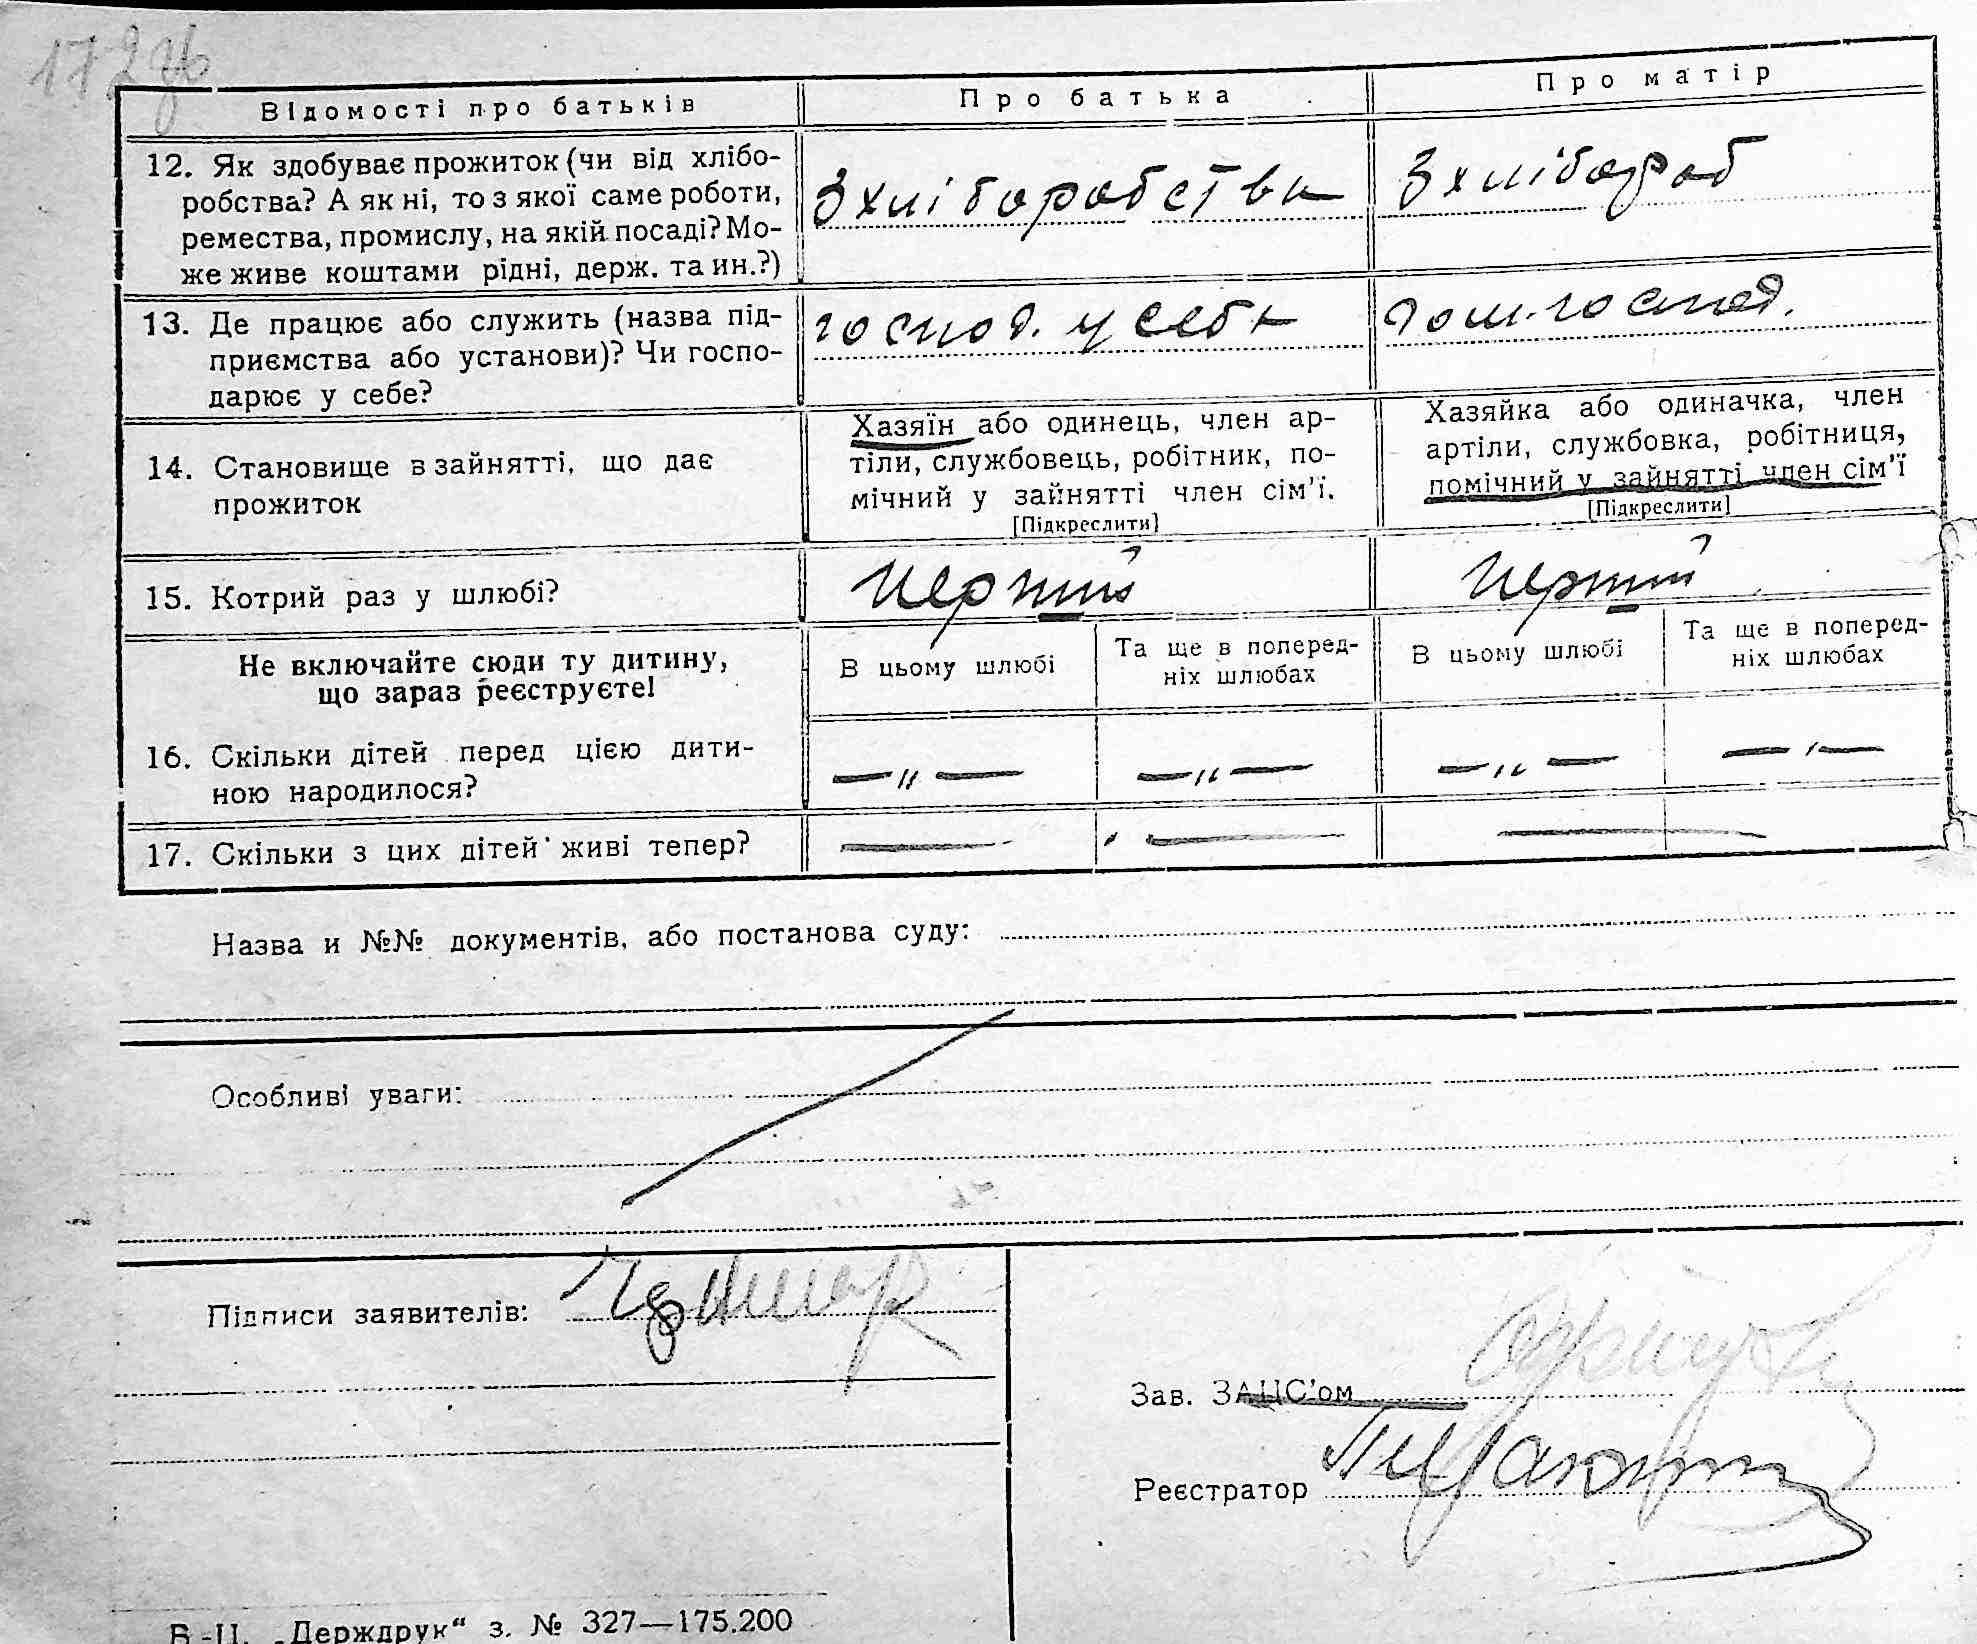 172 зв
Відомості про батьків
Про батька
Про матір
12. Як здобуває прожиток (чи від хлібо-
робства? А як ні, то з якої саме роботи,
ремества, промислу, на якій посаді? Мо-
же живе коштами рідні, держ. та ин.?)
З хліборобства
З хлібороб
13. Де працює або служить (назва під-
приємства або установи)? Чи госпо-
дарює у себе?
господ. у себе
дом. господ.
14. Становище в зайнятті, що дає
прожиток
Хазяїн або одинець, член ар-
тіли, службовець, робітник, по-
мічний у зайнятті член сім'ї.
[Підкреслити]
Хазяйка або одиначка, член
артіли, службовка, робітниця,
помічний у зайнятті член сім'ї
[Підкреслити]
15. Котрий раз у шлюбі?
перший
перший
Не включайте сюди ту дитину,
що зараз реєструєте!
В цьому шлюбі
Та ще в поперед-
ніх шлюбах
В цьому шлюбі
Та ще в поперед-
ніх шлюбах
16. Скільки дітей перед цією дити-
ною народилося?
— „ —
— „ —
— „ —
— „ —
17. Скільки з цих дітей живі тепер?
—
—
—
Назва и №№ документів, або постанова суду:
Особливі уваги:
Підписи заявителів:
Зав. ЗАЦС'ом
Реєстратор
В.-Ц. „Держдрук“ з. № 327—175.200